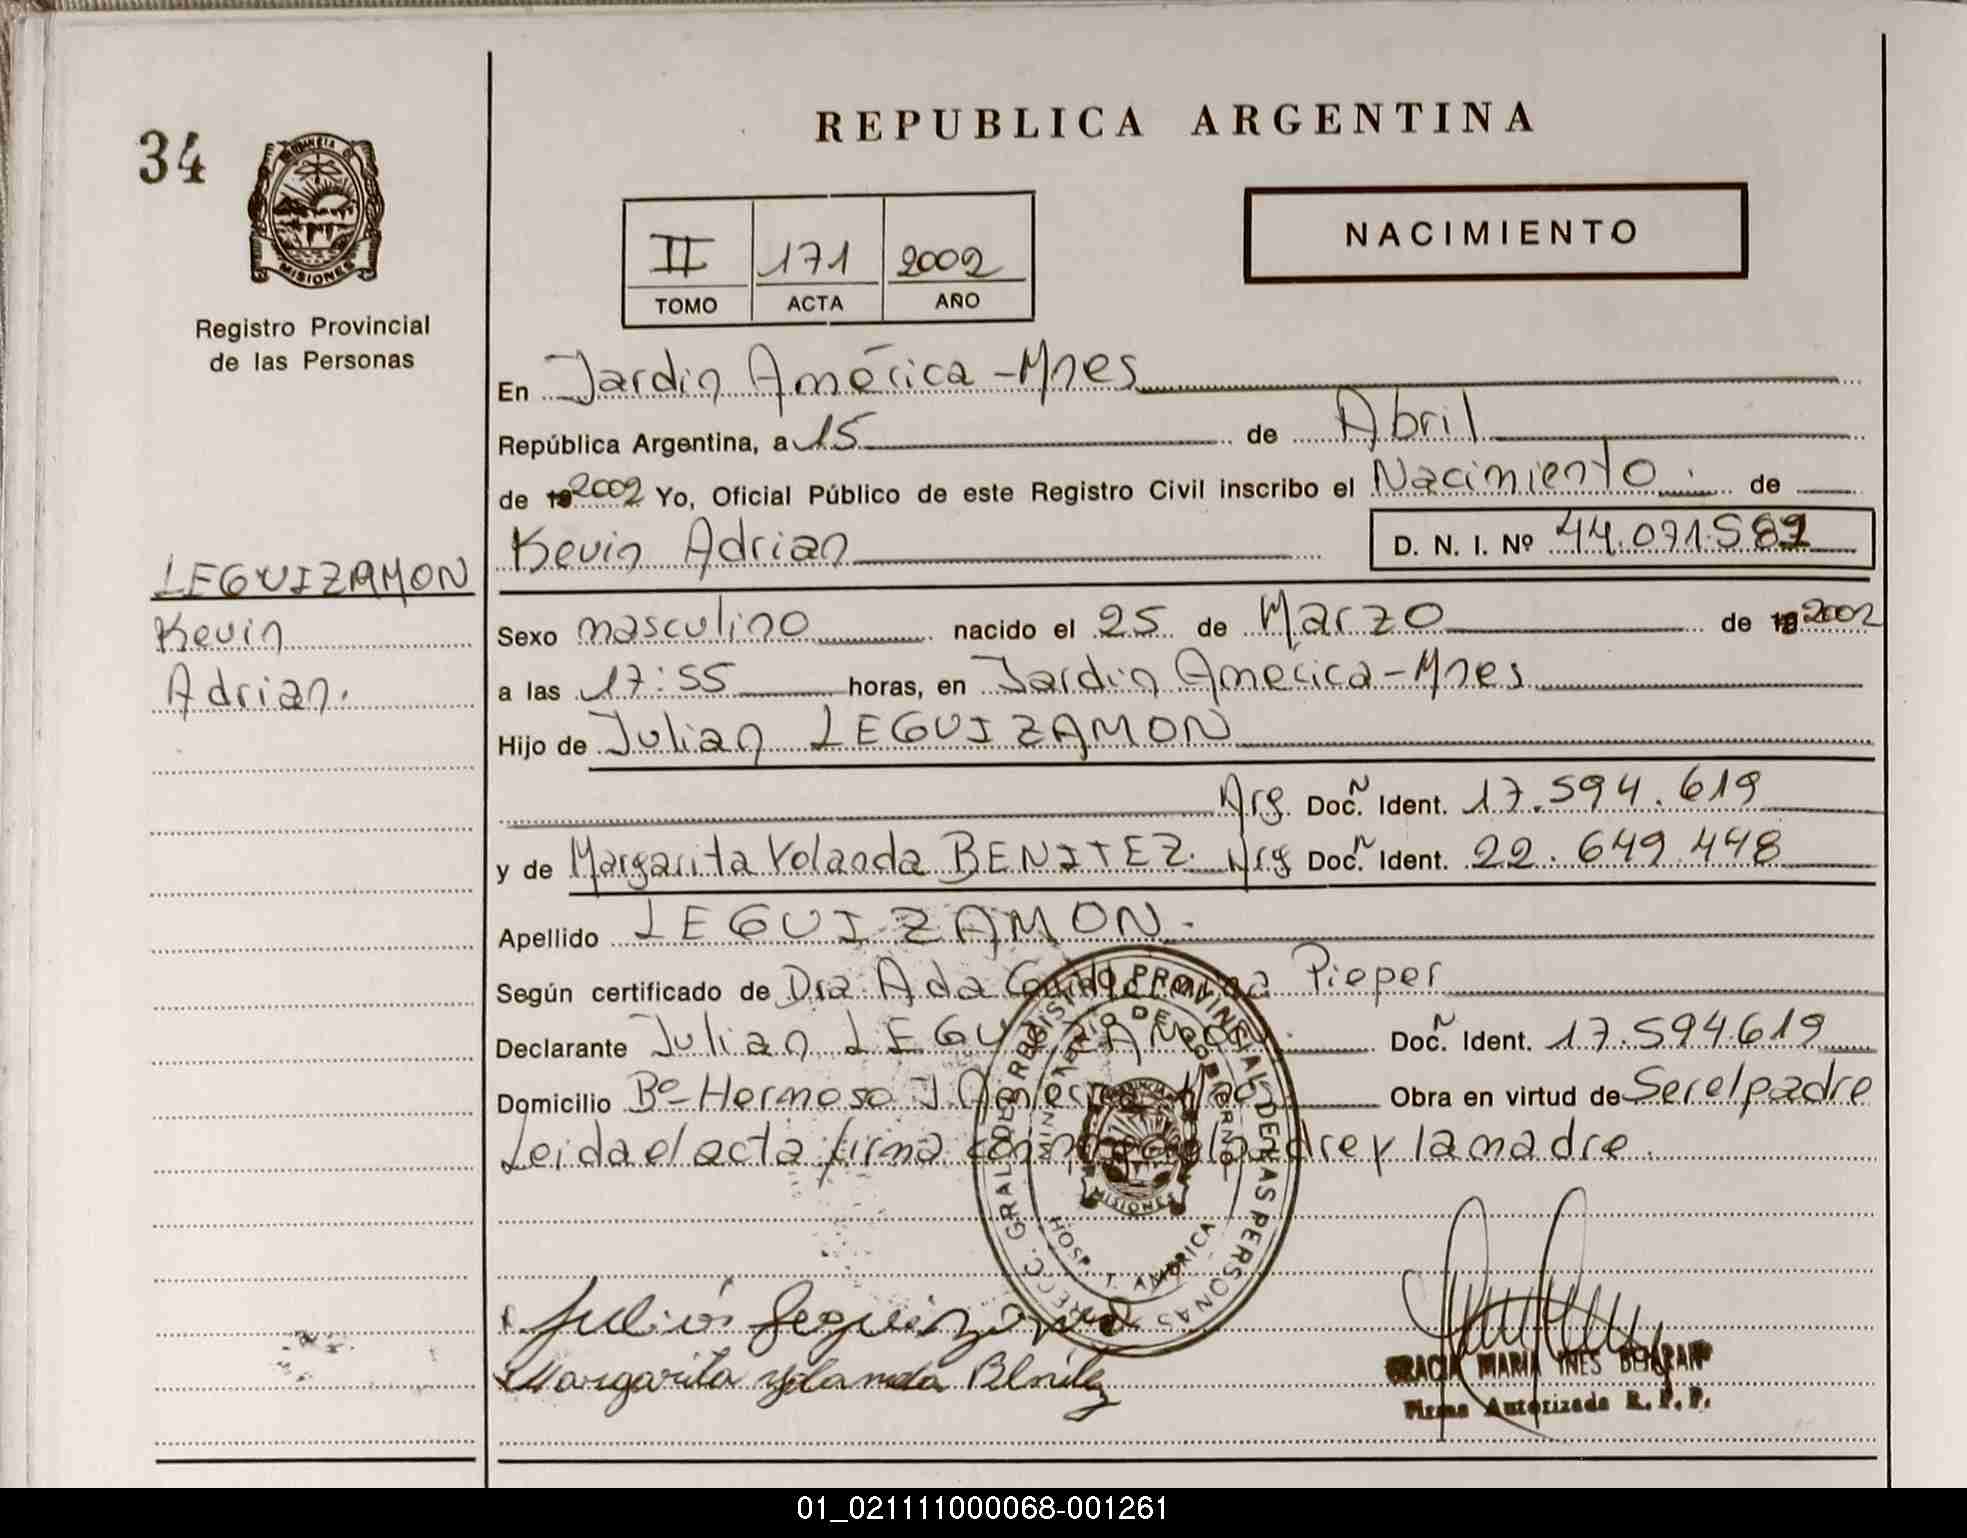 REPUBLICA ARGENTINA
34
PROVINCIA DE
MISIONES
Registro Provincial
de las Personas
II 171 2002
TOMO ACTA AÑO
NACIMIENTO
En Jardin América - Mnes
República Argentina, a 15 de Abril
de 19 2002 Yo, Oficial Público de este Registro Civil inscribo el Nacimiento. de
Kevin Adrian D. N. I. Nº
LEGUIZAMON
Kevin
Adrian.
Sexo masculino nacido el 25 de Marzo de 19 2002
a las 17:55 horas, en Jardin América - Mnes
Hijo de Julian LEGUIZAMON
Arg. Doc. Ident. 17.594.619
y de Margarita Yolanda BENITEZ. Arg Doc. Ident. 22.649.448
Apellido LEGUIZAMON.-
Según certificado de Dra. Ada Pieper
Declarante Julian LEGUIZAMON Doc. Ident. 17.594.619
Domicilio Bº Hermoso J. América Mnes Obra en virtud de Ser el padre
Leida el acta firma conmigo el padre y la madre.
DIRECC. GRAL. DE REGISTRO PROVINCIAL DE LAS PERSONAS
MINISTERIO DE GOBIERNO
MISIONES
HOSP. J. AMERICA
Julián Leguizamon
Margarita Yolanda Benítez
GRACIA MARIA INES
Firma Autorizada R. P. P.
01_021111000068-001261